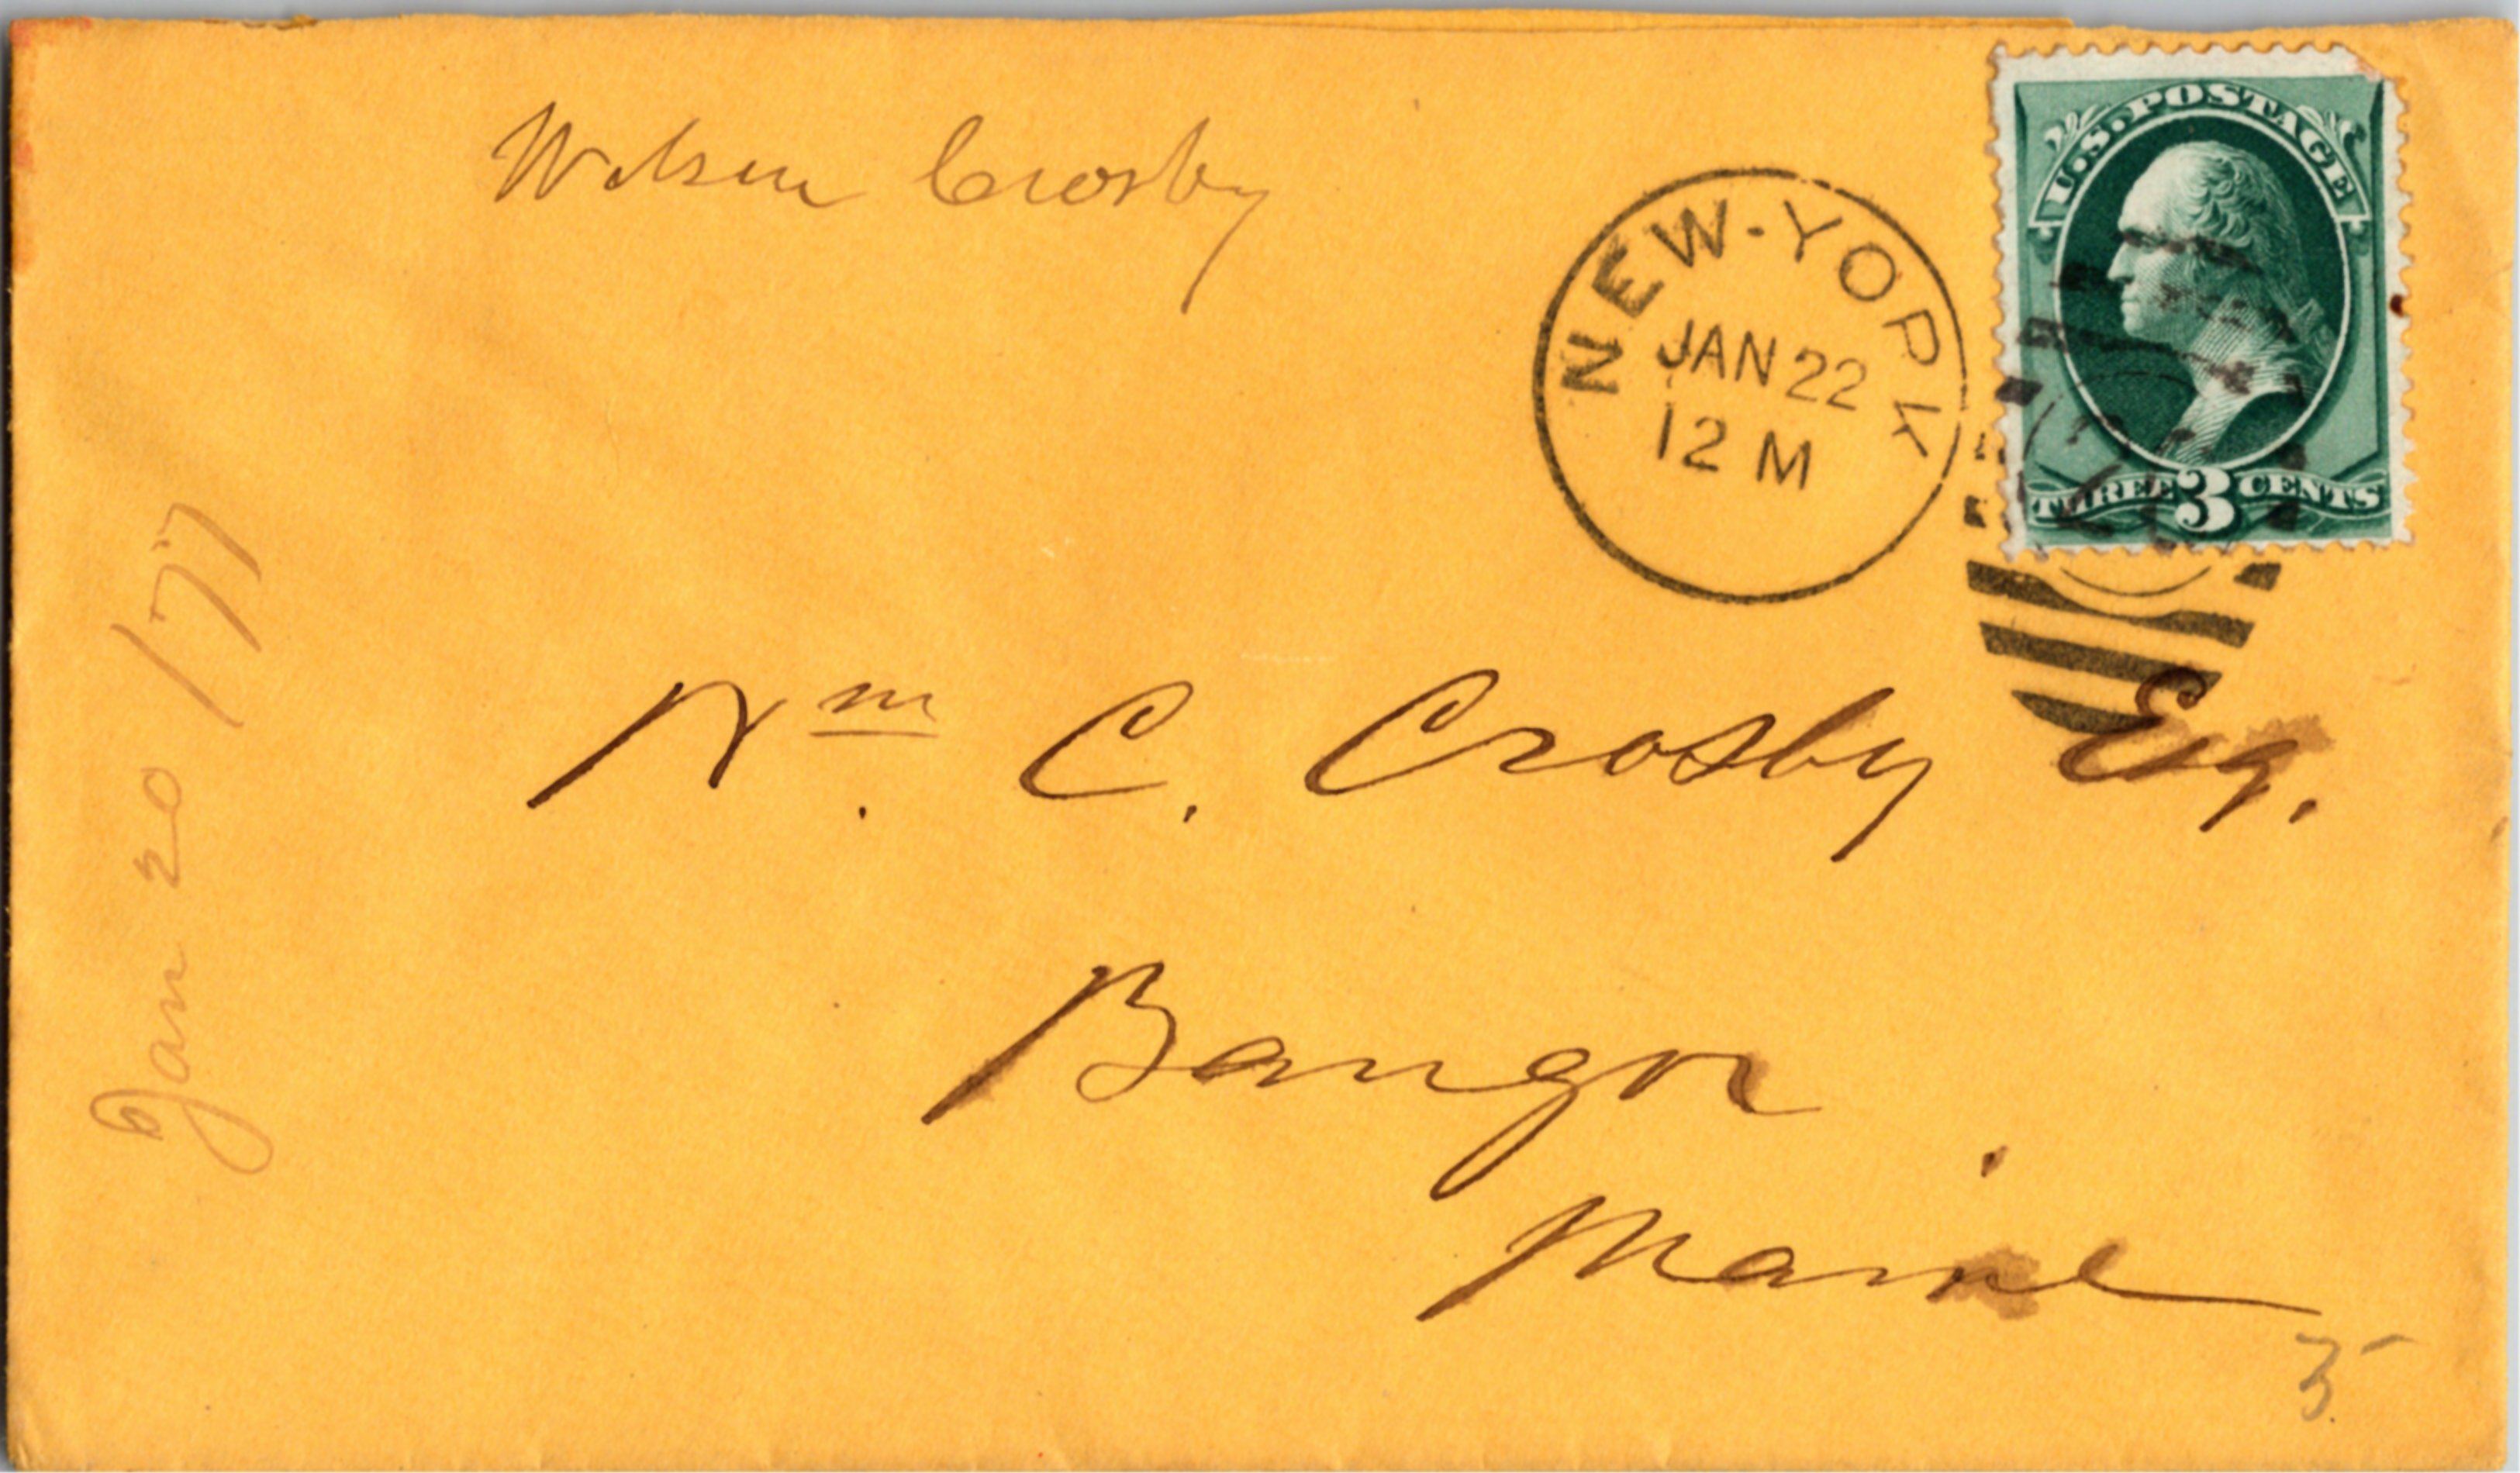 Wilson Crosby
U.S. POSTAGE
THREE 3 CENTS
NEW-YORK
JAN 22
12 M
Jan 20 /77
Wm. C. Crosby Esq.
Bangor
Maine